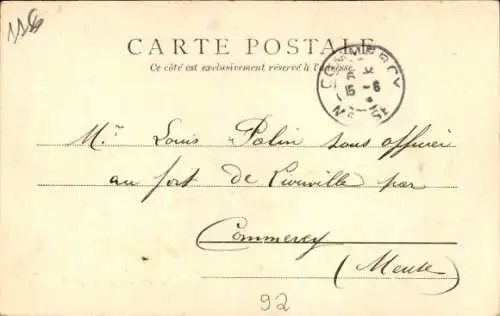 1186
CARTE POSTALE
Ce côté est exclusivement réservé à l'adresse
COMMERCY
15 - 6
MEUSE
M.r Louis Palin sous officier
au fort de Liouville par
Commercy
(Meuse)
92